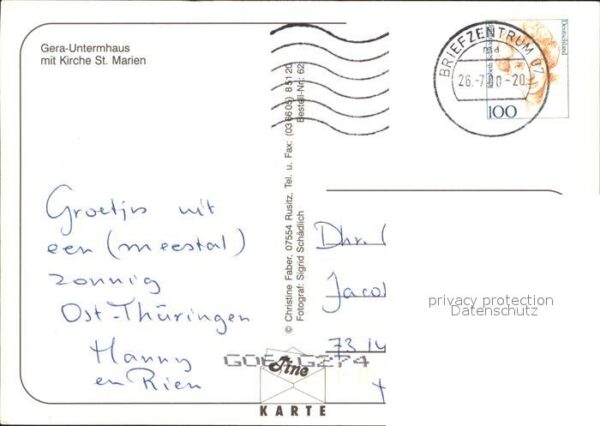 Gera-Untermhaus
mit Kirche St. Marien
BRIEFZENTRUM 07
26.-7.00-20
Deutschland
100
Groetjes uit
een (meestal)
zonnig
Ost-Thüringen
Hanny
en Rien
© Christine Faber, 07554 Rusitz, Tel. u. Fax: (03 66 05) 8 51 20
Fotograf: Sigrid Schädlich
Bestell-Nr. 62
Dhr.
Jacob
73
privacy protection
Datenschutz
Fine
KARTE